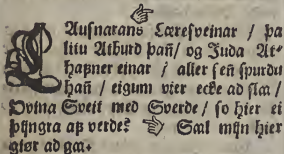 LAusnarans Læresveinar / þa
litu Atburd þañ / og Juda At⸗
hafner einar / aller señ spurdu
hañ / eigum vier ecke ad slæ /
Ovina Sveit med Sverde / so hier ei
þÿngra aß verde? Sæl mÿn hier
giør ad gæ.